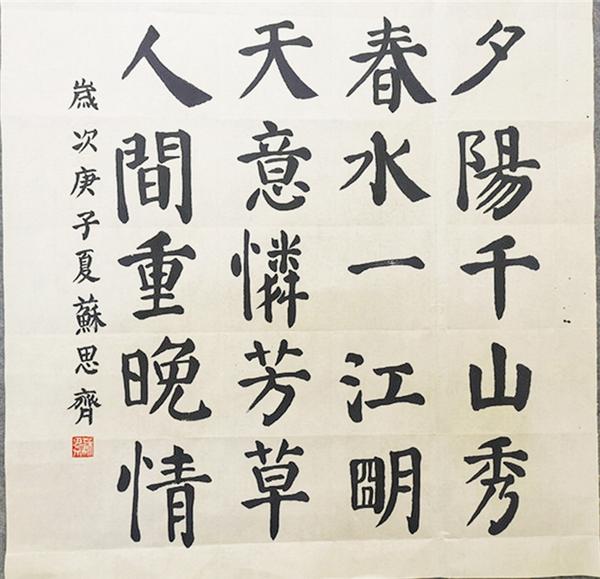 夕陽千山秀
春水一江朙
天意憐芳草
人間重晚情
嵗次庚子夏蘇思齊